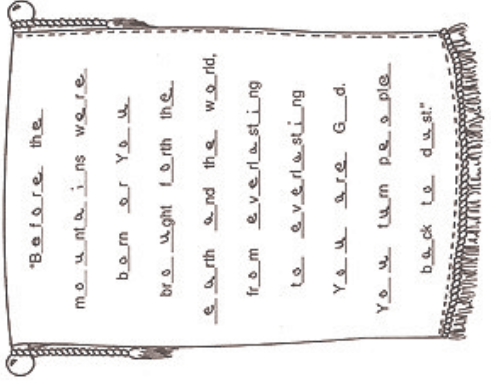 "Before the
mountains were
born or You
brought forth the
earth and the world,
from everlasting
to everlasting
You are G_d.
You turn people
back to dust."